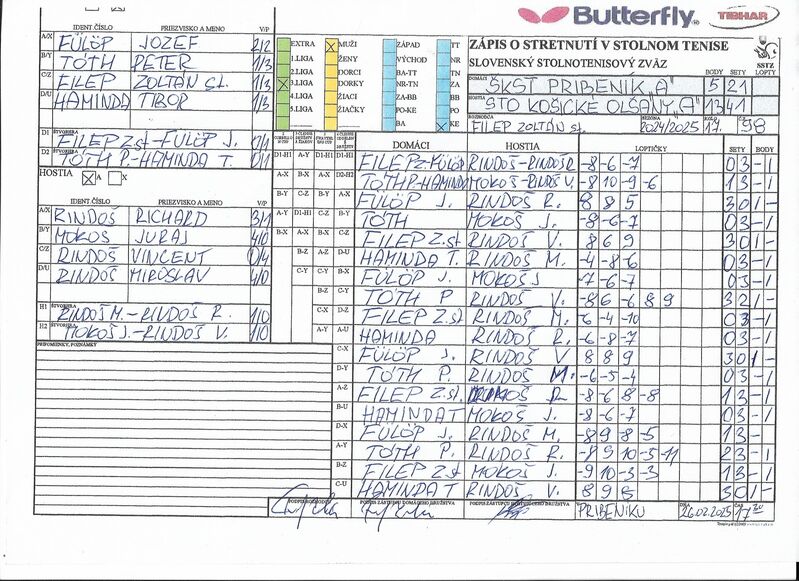 Butterfly
TIBHAR
IDENT.ČÍSLO PRIEZVISKO A MENO V/P
A/X FÜLÖP JOZEF 2/2
B/Y TÓTH PETER 1/3
C/Z FILEP ZOLTÁN st. 1/3
D/U HAMINDA TIBOR 1/3
D1 ŠTVORHRA FILEP Z.st-FÜLÖP J. 0/1
D2 TÓTH P.-HAMINDA T. 0/1
HOSTIA X A X
IDENT.ČÍSLO PRIEZVISKO A MENO V/P
A/X RINDOŠ RICHARD 3/1
B/Y MOKOŠ JURAJ 4/0
C/Z RINDOŠ VINCENT 0/4
D/U RINDOŠ MIROSLAV 4/0
H1 ŠTVORHRA RINDOŠ M.-RINDOŠ R. 1/0
H2 ŠTVORHRA MOKOŠ J.-RINDOŠ V. 1/0
PRIPOMIENKY, POZNÁMKY
EXTRA X MUŽI ZÁPAD TT
1.LIGA ŽENY VÝCHOD NR
2.LIGA DORCI BA-TT TN
X 3.LIGA DORKY NR-TN ZA
4.LIGA ŽIACI ZA-BB BB
5.LIGA ŽIAČKY PO-KE PO
BA X KE
ZÁPIS O STRETNUTÍ V STOLNOM TENISE
SLOVENSKÝ STOLNOTENISOVÝ ZVÄZ
SSTZ
BODY SETY LOPTY
DOMÁCI ŠKST PRIBENÍK „A" 5 21
HOSTIA STO KOŠICKÉ OLŠANY „A" 13 41
ROZHODCA FILEP ZOLTÁN st. SEZÓNA 2024/2025 17. 98
DOMÁCI HOSTIA LOPTIČKY SETY BODY
D1-H1 A-Y A-Y D1-H1 D2-H1 FILEP Z-FÜLÖP RINDOŠ-RINDOŠ R. -8 -6 -7 0 3 -1
A-X B-X B-X A-X D1-H2 TÓTH P-HAMINDA MOKOŠ-RINDOŠ V. -8 10 -9 -6 1 3 -1
FÜLÖP J. RINDOŠ R. 8 8 5 3 0 1 -
TÓTH MOKOŠ J. -8 -6 -7 0 3 -1
FILEP Z.st. RINDOŠ V. 8 6 9 3 0 1 -
HAMINDA T. RINDOŠ M. -4 -8 -6 0 3 -1
FÜLÖP J. MOKOŠ J -7 -6 -7 0 3 -1
TÓTH P. RINDOŠ V. -8 6 -6 8 9 3 2 1 -
FILEP Z.st RINDOŠ M. -6 -4 -10 0 3 -1
A-Y A-U HAMINDA RINDOŠ R. -6 -8 -7 0 3 -1
C-X FÜLÖP J. RINDOŠ V 8 8 9 3 0 1 -
D-Y TÓTH P. RINDOŠ M. -6 -5 -4 0 3 -1
A-Z FILEP Z.st. R -8 -6 8 -8 1 3 -1
B-U HAMINDA T MOKOŠ J. -8 -6 -7 0 3 -1
D-X FÜLÖP J. RINDOŠ M. -8 9 -8 -5 1 3 -
A-Y TÓTH P. RINDOŠ R. -8 9 10 -5 -11 2 3 -1
B-Z FILEP Z.st MOKOŠ J. -9 10 -3 -3 1 3 -1
C-U HAMINDA T RINDOŠ V. 8 9 8 3 0 1 -
PODPIS ROZHODCU PODPIS ZÁSTUPCU DOMÁCEHO DRUŽSTVA PODPIS ZÁSTUPCU HOSŤUJÚCEHO DRUŽSTVA PRIBENÍKU DŇA 26.02.2025 ČAS 17 30